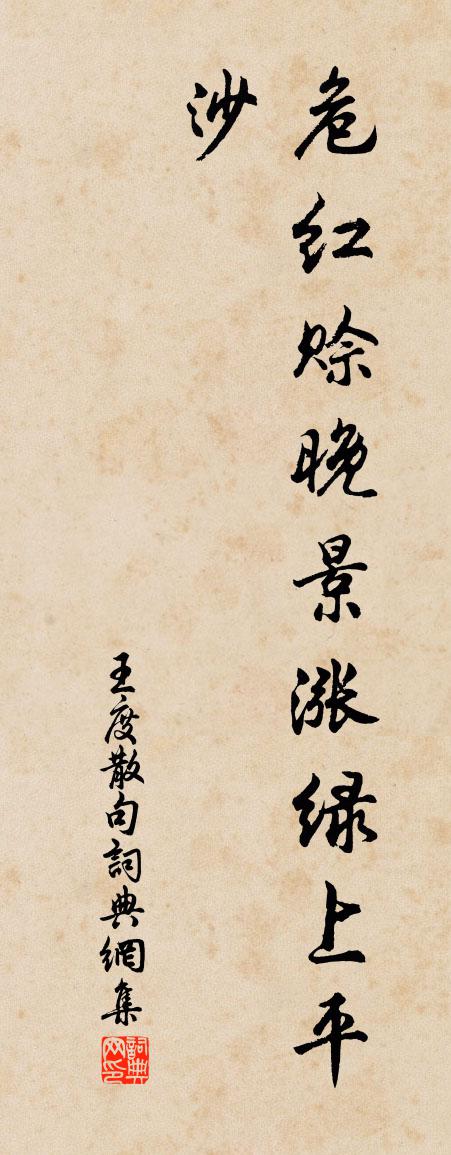 危红赊晚景涨绿上平
沙
王度散句詞典網集
詞典网印